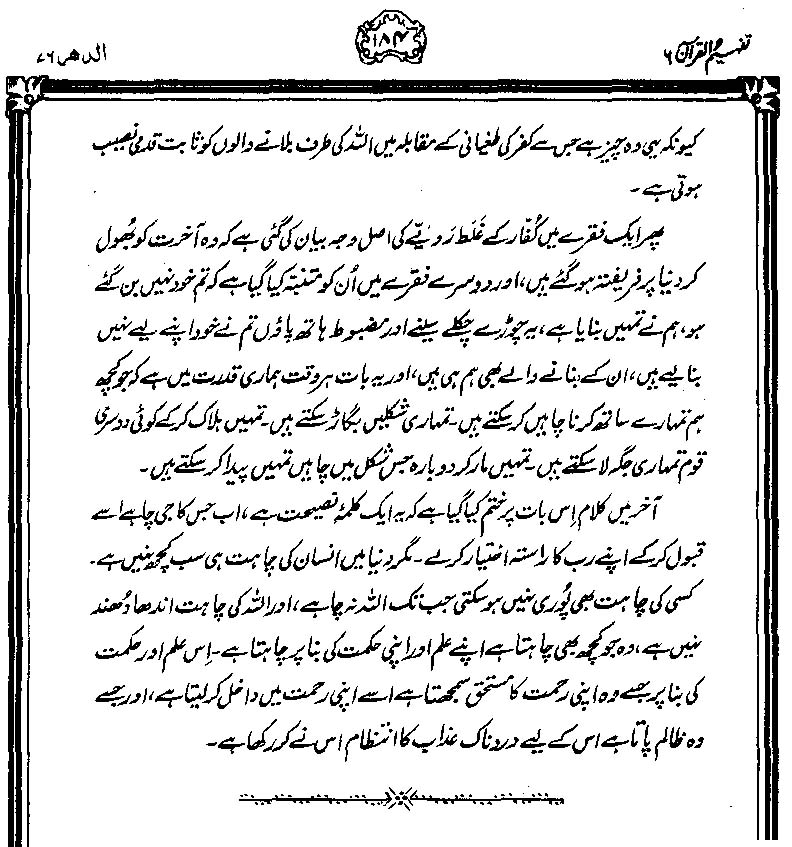 تفہیم القرآن ۶
۱۸۴
الدھر ۷۶
کیونکہ یہی وہ چیز ہے جس سے کفر کی طغیانی کے مقابلہ میں اللہ کی طرف بلانے والوں کو ثابت قدمی نصیب
ہوتی ہے۔
پھر ایک فقرے میں کُفّار کے غَلَط رَویّے کی اصل وجہ بیان کی گئی ہے کہ وہ آخرت کو بھُول
کر دنیا پر فریفتہ ہو گئے ہیں، اور دوسرے فقرے میں اُن کو متنبہ کیا گیا ہے کہ تم خود نہیں بن گئے
ہو، ہم نے تمہیں بنایا ہے، یہ چوڑے چکلے سینے اور مضبوط ہاتھ پاؤں تم نے خود اپنے لیے نہیں
بنا لیے ہیں، ان کے بنانے والے بھی ہم ہی ہیں، اور یہ بات ہر وقت ہماری قدرت میں ہے کہ جو کچھ
ہم تمہارے ساتھ کرنا چاہیں کر سکتے ہیں۔ تمہاری شکلیں بگاڑ سکتے ہیں۔ تمہیں ہلاک کر کے کوئی دوسری
قوم تمہاری جگہ لا سکتے ہیں۔ تمہیں مار کر دوبارہ جس شکل میں چاہیں تمہیں پیدا کر سکتے ہیں۔
آخر میں کلام اِس بات پر ختم کیا گیا ہے کہ یہ ایک کلمۂ نصیحت ہے، اب جس کا جی چاہے اسے
قبول کر کے اپنے رب کا راستہ اختیار کر لے۔ مگر دنیا میں انسان کی چاہت ہی سب کچھ نہیں ہے۔
کسی کی چاہت بھی پُوری نہیں ہو سکتی جب تک اللہ نہ چاہے، اور اللہ کی چاہت اندھا دُھند
نہیں ہے، وہ جو کچھ بھی چاہتا ہے اپنے علم اور اپنی حکمت کی بنا پر چاہتا ہے۔ اِس علم اور حکمت
کی بنا پر جسے وہ اپنی رحمت کا مستحق سمجھتا ہے اسے اپنی رحمت میں داخل کر لیتا ہے، اور جسے
وہ ظالم پاتا ہے اس کے لیے دردناک عذاب کا انتظام اس نے کر رکھا ہے۔